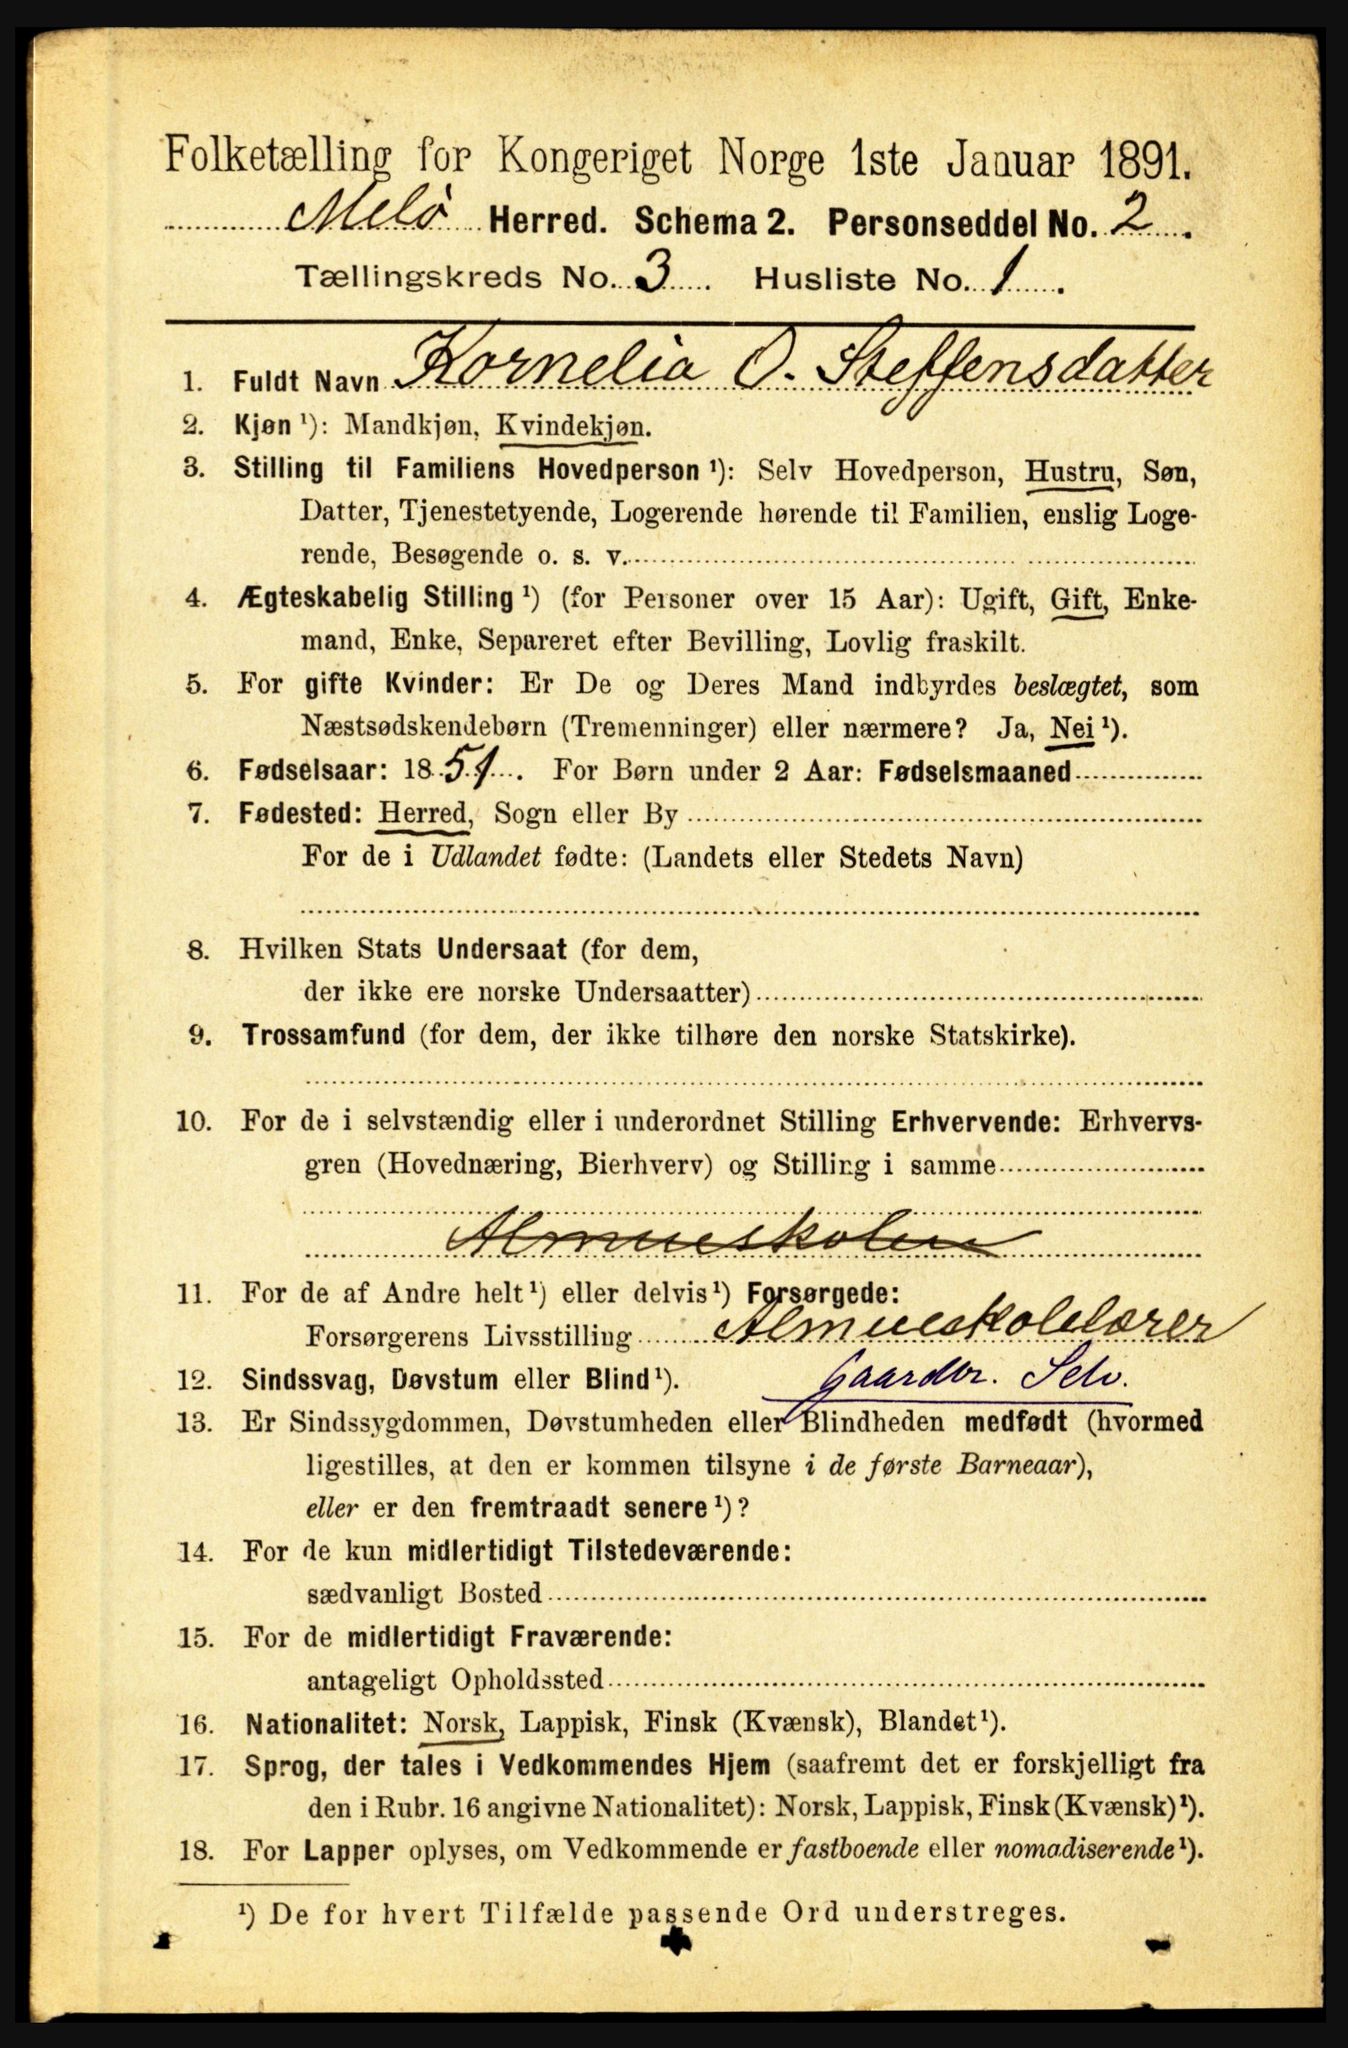 Folketælling for Kongeriget Norge 1ste Januar 1891.
Melö Herred. Schema 2. Personseddel No. 2.
Tællingskreds No. 3. Husliste No. 1.
1. Fuldt Navn Kornelia O. Steffensdatter
2. Kjøn ¹): Mandkjøn, Kvindekjøn.
3. Stilling til Familiens Hovedperson ¹): Selv Hovedperson, Hustru, Søn,
Datter, Tjenestetyende, Logerende hørende til Familien, enslig Loge-
rende, Besøgende o. s. v.
4. Ægteskabelig Stilling ¹) (for Personer over 15 Aar): Ugift, Gift, Enke-
mand, Enke, Separeret efter Bevilling, Lovlig fraskilt.
5. For gifte Kvinder: Er De og Deres Mand indbyrdes beslægtet, som
Næstsødskendebørn (Tremenninger) eller nærmere? Ja, Nei ¹).
6. Fødselsaar: 1851. For Børn under 2 Aar: Fødselsmaaned
7. Fødested: Herred, Sogn eller By
For de i Udlandet fødte: (Landets eller Stedets Navn)
8. Hvilken Stats Undersaat (for dem,
der ikke ere norske Undersaatter)
9. Trossamfund (for dem, der ikke tilhøre den norske Statskirke).
10. For de i selvstændig eller i underordnet Stilling Erhvervende: Erhvervs-
gren (Hovednæring, Bierhverv) og Stilling i samme
Almueskolen
11. For de af Andre helt ¹) eller delvis ¹) Forsørgede:
Forsørgerens Livsstilling Almueskolelærer
12. Sindssvag, Døvstum eller Blind ¹). Gaardbr. Selv.
13. Er Sindssygdommen, Døvstumheden eller Blindheden medfødt (hvormed
ligestilles, at den er kommen tilsyne i de første Barneaar),
eller er den fremtraadt senere ¹)?
14. For de kun midlertidigt Tilstedeværende:
sædvanligt Bosted
15. For de midlertidigt Fraværende:
antageligt Opholdssted
16. Nationalitet: Norsk, Lappisk, Finsk (Kvænsk), Blandet ¹).
17. Sprog, der tales i Vedkommendes Hjem (saafremt det er forskjelligt fra
den i Rubr. 16 angivne Nationalitet): Norsk, Lappisk, Finsk (Kvænsk) ¹).
18. For Lapper oplyses, om Vedkommende er fastboende eller nomadiserende ¹).
¹) De for hvert Tilfælde passende Ord understreges.